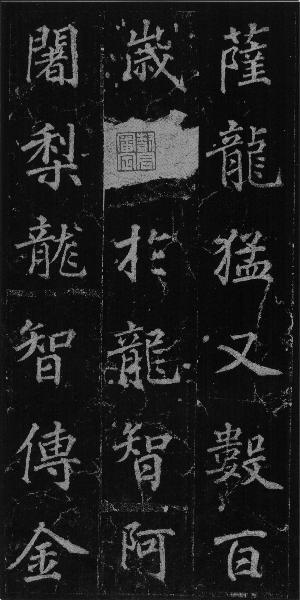 薩龍猛又數百
歲於龍智阿
闍梨龍智傳金